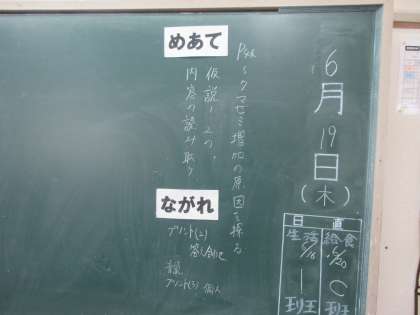 6月19日(木)
P48〜クマゼミ増加の原因を探る
めあて
仮説1、2の、
内容の読み取り
ながれ
プリント(2)
音読
プリント(3) 個人
日直
給食
班
生活
1
班